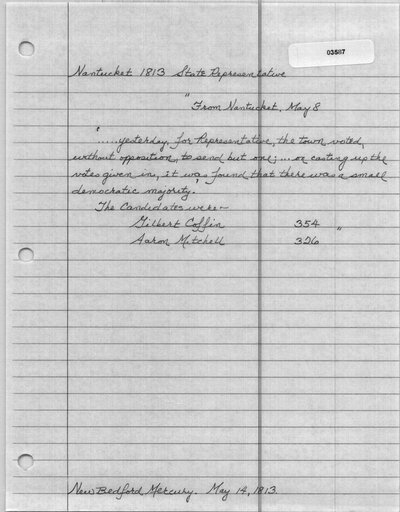 03587
Nantucket 1813 State Representative
"
From Nantucket, May 8
.....yesterday, for Representative, the town voted,
without opposition, to send but one; ... on casting up the
votes given in, it was found that there was a small
democratic majority.
The Candidates were—
Gilbert Coffin 354 "
Aaron Mitchell 326
New Bedford Mercury. May 14, 1813.